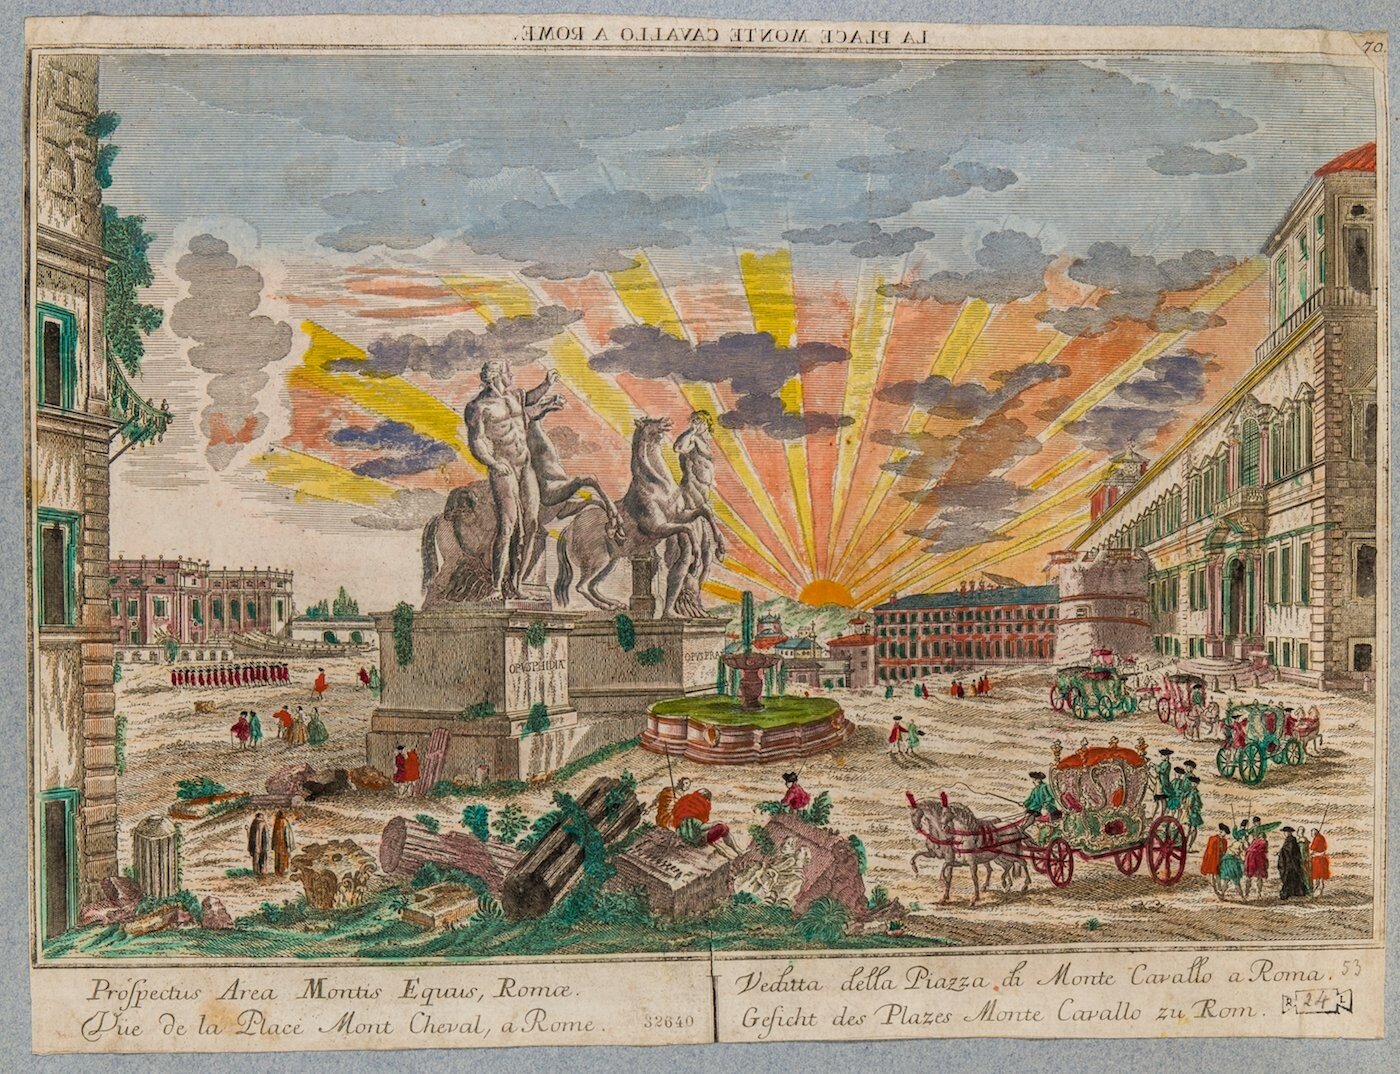 LA PLACE MONTE CAVALLO A ROME.
70.
OPVS PHIDIÆ
OPVS PRA
Prospectus Area Montis Equus, Romæ.
Vüe de la Place Mont Cheval, a Rome.
32640
Veduta della Piazza di Monte Cavallo a Roma.
53
Gesicht des Plazes Monte Cavallo zu Rom.
R 24 L